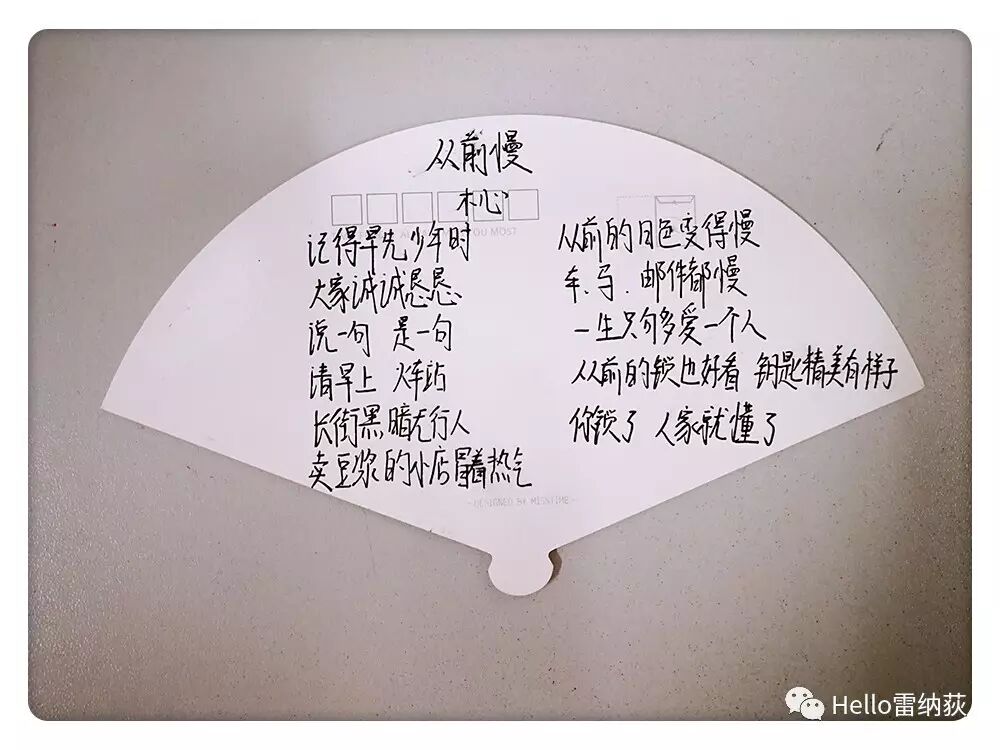 从前慢
木心
记得早先少年时
大家诚诚恳恳
说一句 是一句
清早上 火车站
长街黑暗无行人
卖豆浆的小店冒着热气
从前的日色变得慢
车、马、邮件都慢
一生只句多爱一个人
从前的锁也好看 钥匙精美有样子
你锁了 人家就懂了
YOU MOST
-DESIGNED BY MISSTIME-
Hello雷纳荻